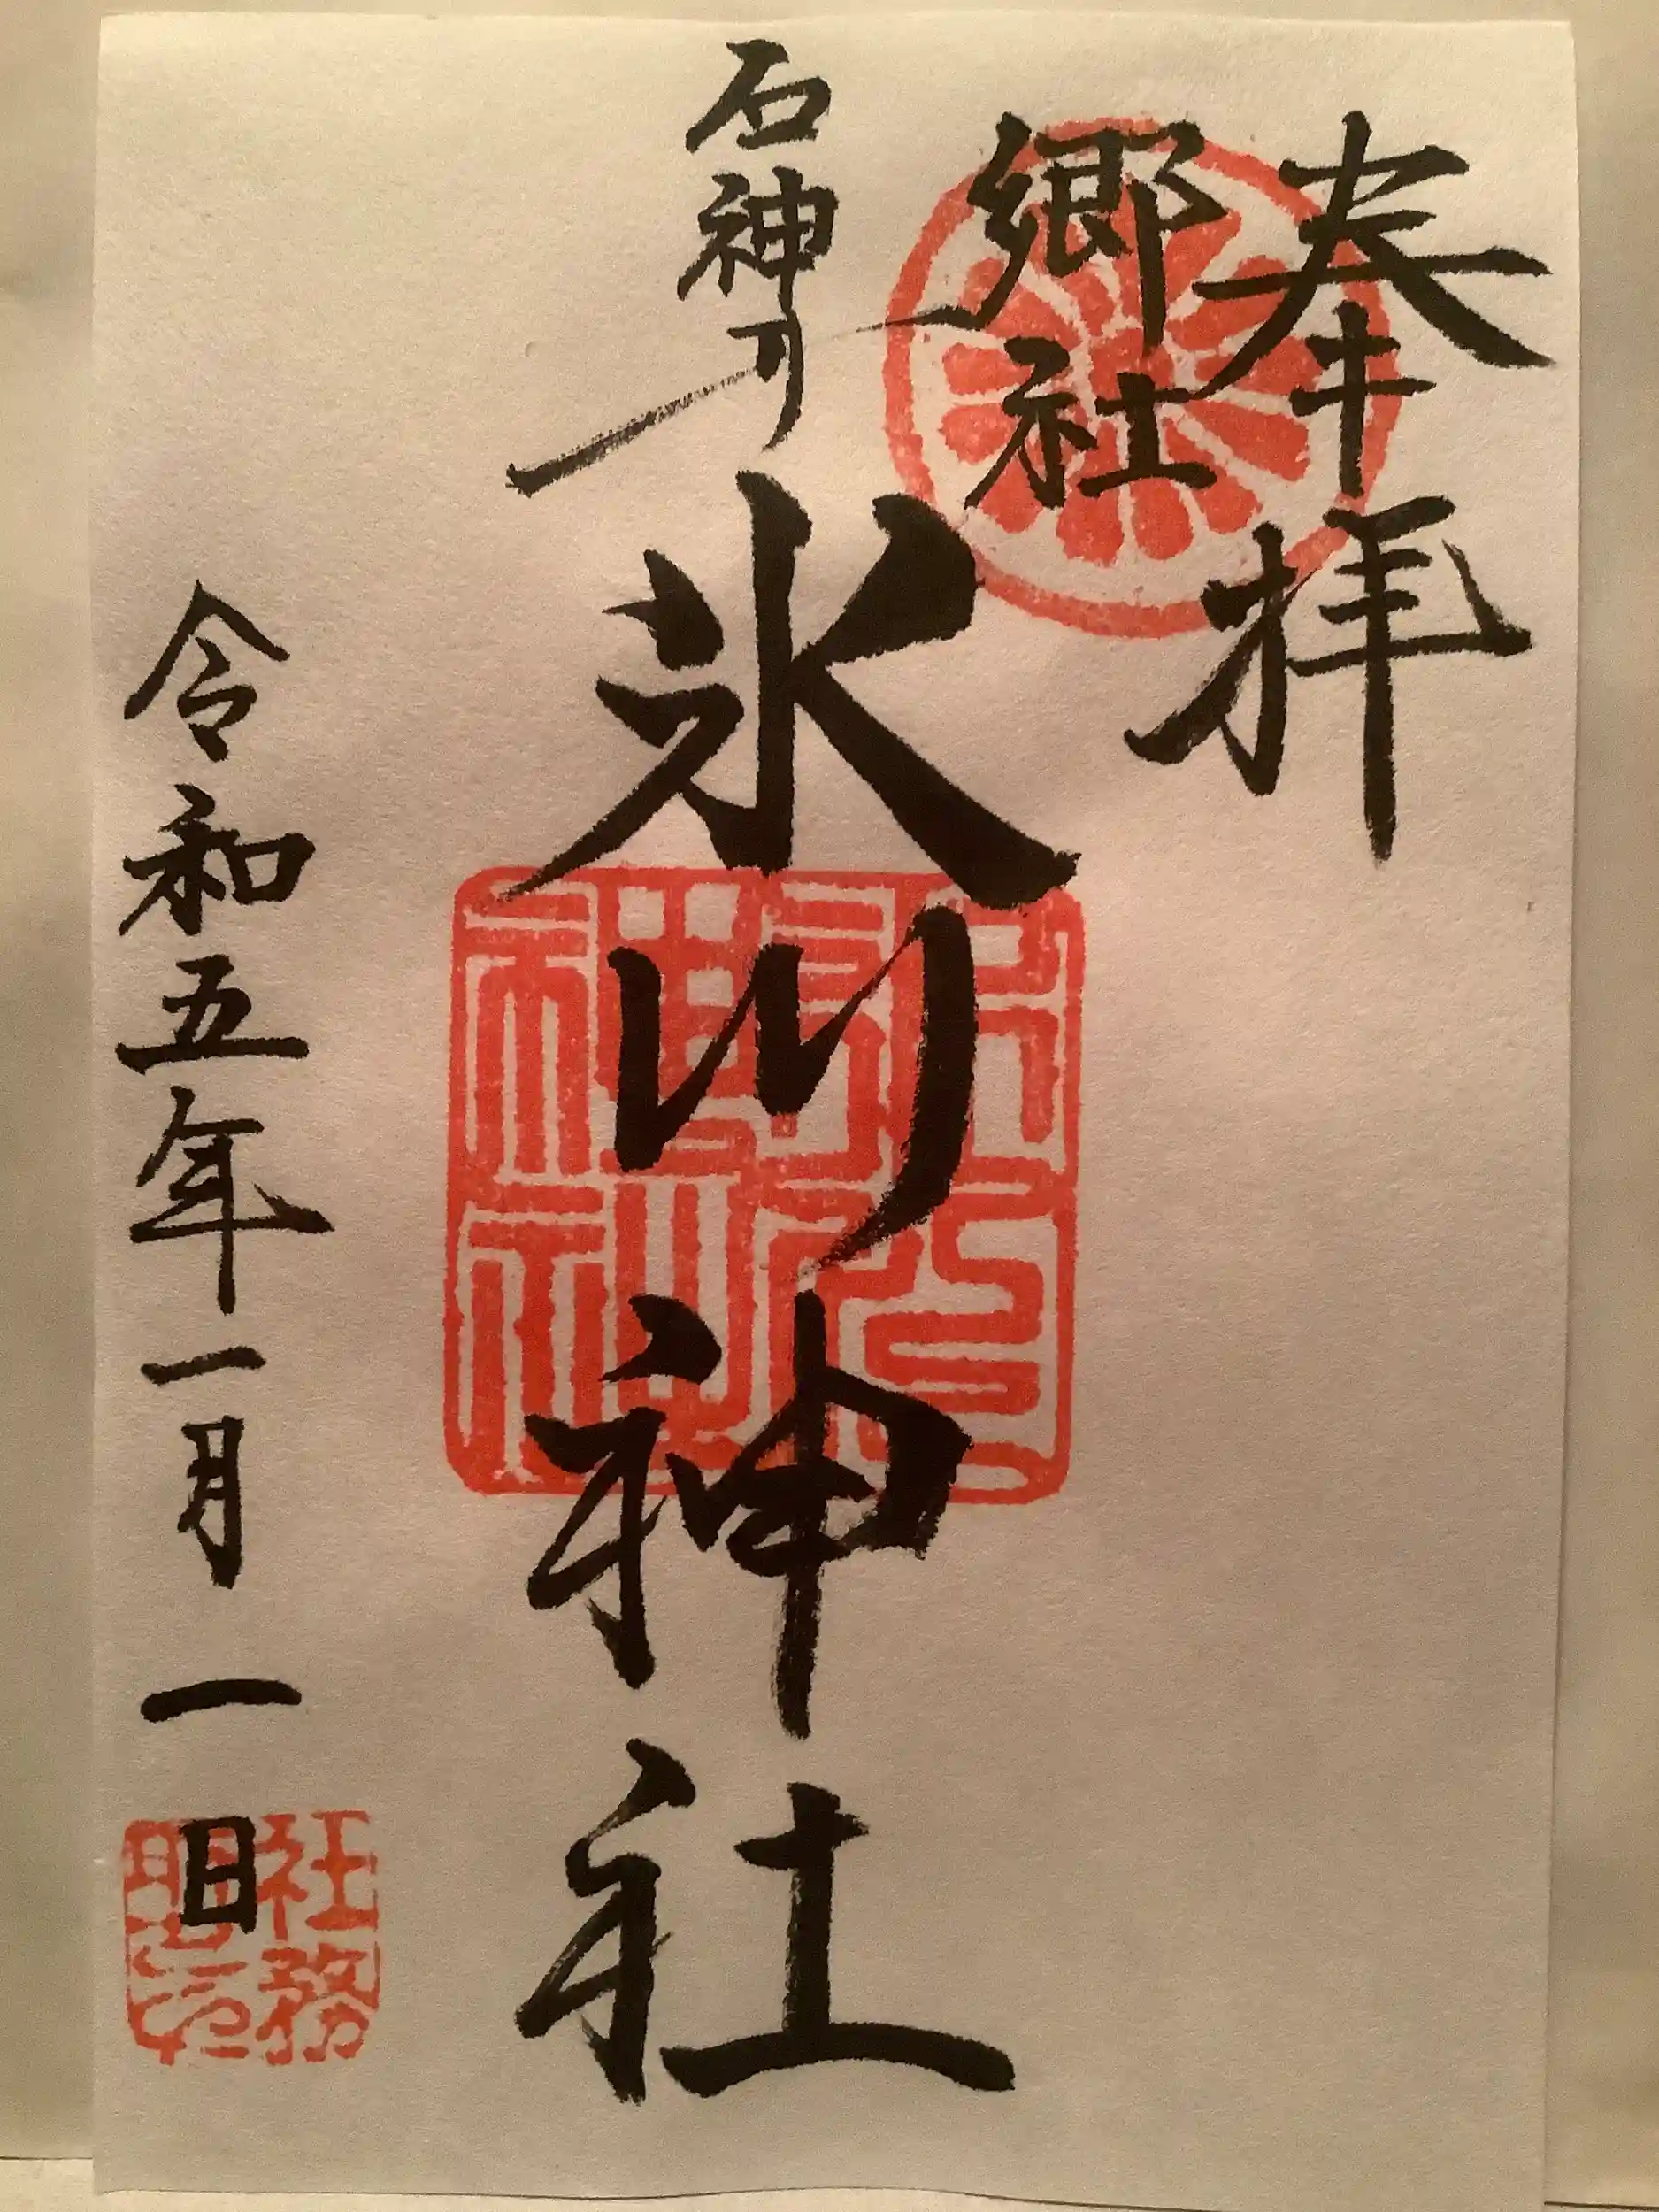 奉拝
郷社
石神井
氷川神社
令和五年一月一日
社務